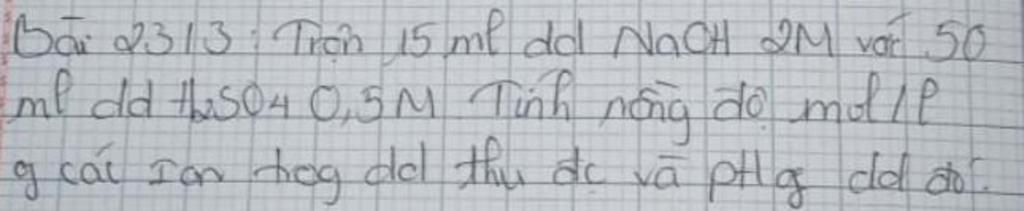 Bài 2313: Trộn 15 ml dd NaOH 2M với 50
ml dd H2SO4 0,5M Tính nồng độ mol/l
g các Ion trog dd thu đc và pH g dd đó.